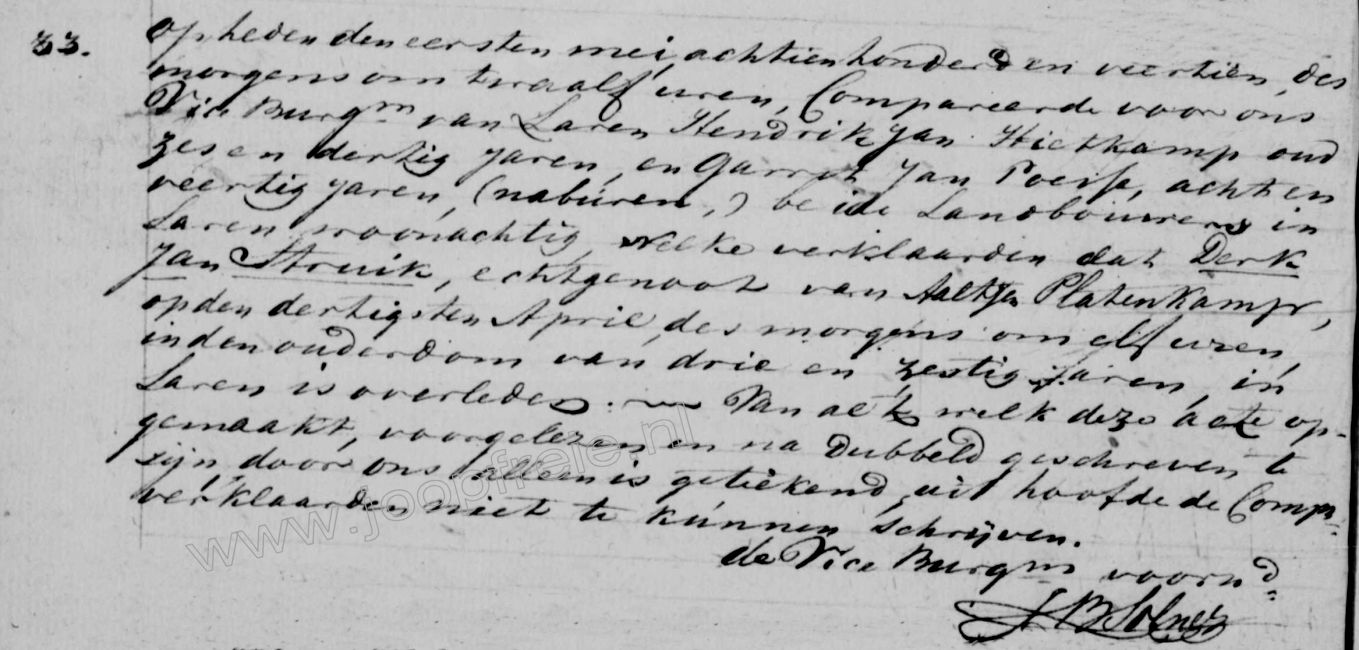 33.
op heden den eersten mei, achtienhonderd en veertien, des
morgens om twaalf uren, Compareerde voor ons
Vice Burgm van Laren Hendrik Jan Hietkamp oud
zes en dertig jaren, en Garrit Jan Poesse, acht en
veertig jaren, (naburen,) beide Landbouwers in
Laren woonachtig, welke verklaarden dat Derk
Jan Struik, echtgenoot van Aaltjen Platenkamp,
op den dertigsten April, des morgens om elf uren,
in den ouderdom van drie en zestig jaren, in
Laren is overleden. Van al 't welk deze acte op-
gemaakt, voorgelezen en na dubbeld geschreven te
zijn, door ons alleen is getekend, uit hoofde de Compn.
verklaarden niet te kunnen schrijven.
de Vice Burgm voornd.
www.joopfreie.nl